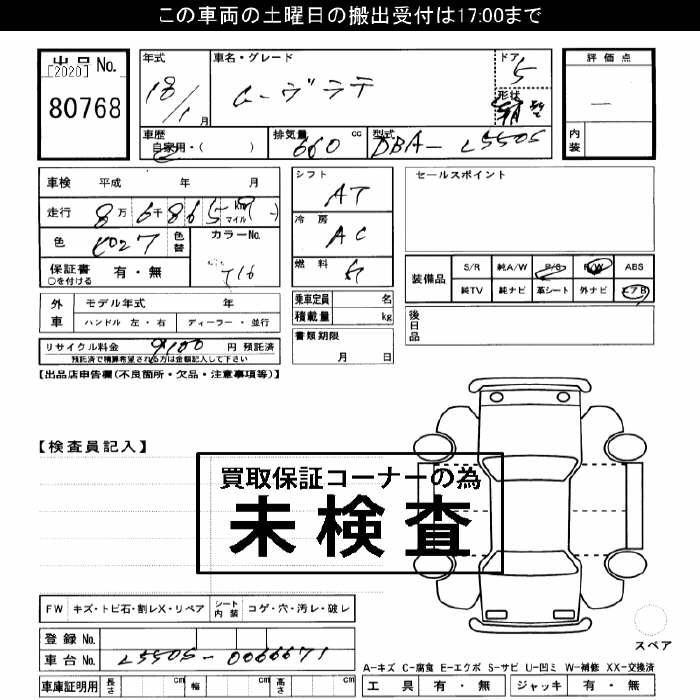 この車両の土曜日の搬出受付は17:00まで
出品No.
[2020]
80768
年式
18/1月
車名・グレード
ムーヴラテ
ドア
5
形状
評価点
内装
車歴
自家用・( )
排気量
660 cc
型式
DBA-L550S
車検 平成 年 月
走行 8万6千865 km マイル
色
色替
カラーNo.
T16
保証書 有・無
○を付ける
シフト
AT
冷房
AC
燃料
ガ
セールスポイント
装備品
S/R 純A/W P/S P/W ABS
純TV 純ナビ 革シート 外ナビ エアB
外車
モデル年式 年
ハンドル 左・右 ディーラー・並行
乗車定員 名
積載量 kg
後日品
リサイクル料金 9100 円 預託済
預託済で精算希望される方は金額記入して下さい
書類期限
月 日
【出品店申告欄(不良箇所・欠品・注意事項等)】
【検査員記入】
買取保証コーナーの為
未検査
FW キズ・トビ石・割レX・リペア シート内装 コゲ・穴・汚レ・破レ
登録No.
車台No. L550S-0066671
スペア
A-キズ C-腐食 E-エクボ S-サビ U-凹ミ W-補修 XX-交換済
車庫証明用 長さ cm 幅 cm 高さ cm
工具 有・無 ジャッキ 有・無